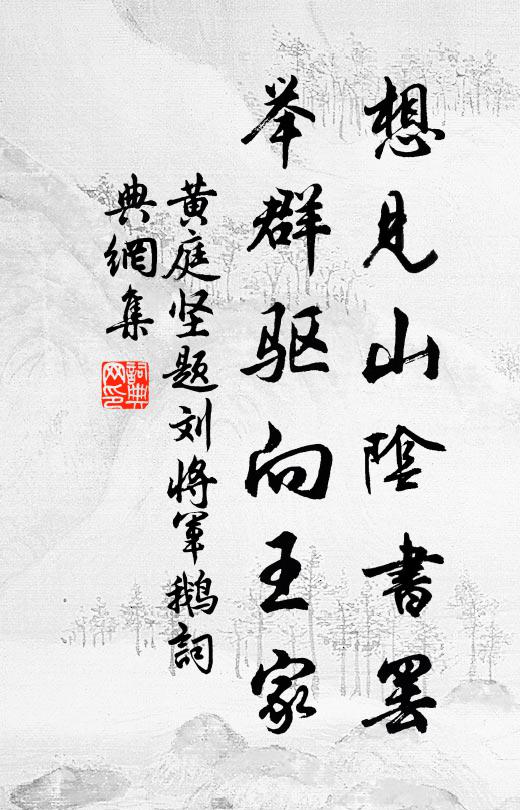 想见山阴書罢
举群驱向王家
黄庭坚题刘将军鹅詞
典網集
詞典
网印